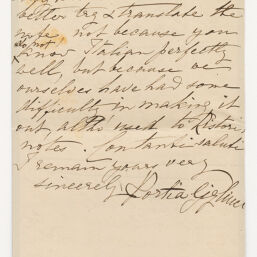 better try & translate the
note, not because you
do not
know Italian perfectly
well, but because we
ourselves have had some
difficulty in making it
out, altho' used to Ristori's
notes. Con tanti saluti
I remain yours very
sincerely Portia